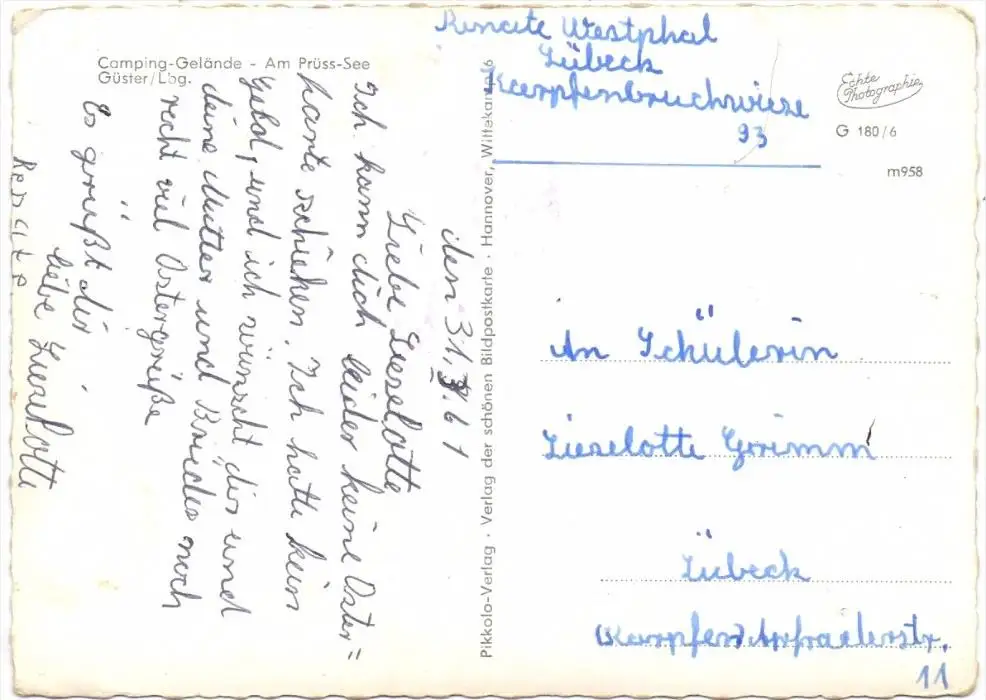 Camping-Gelände - Am Prüss-See
Güster/Lbg.
den 31.3.61
Liebe Lieselotte
Ich kann dich leider keine Oster=
karte schicken. Ich hatte kein
Geld, und ich wünscht dir und
deine Mutter und Brüder noch
recht viel Ostergrüße
Es grüßt dir
liebe Lieselotte
Renate
Pikkolo-Verlag · Verlag der schönen Bildpostkarte · Hannover, Wittekamp 16
Renate Westphal
Lübeck
Karpfenbruchwiese
93
Echte
Photographie
G 180/6
m958
An Schülerin
Lieselotte Grimm
Lübeck
11